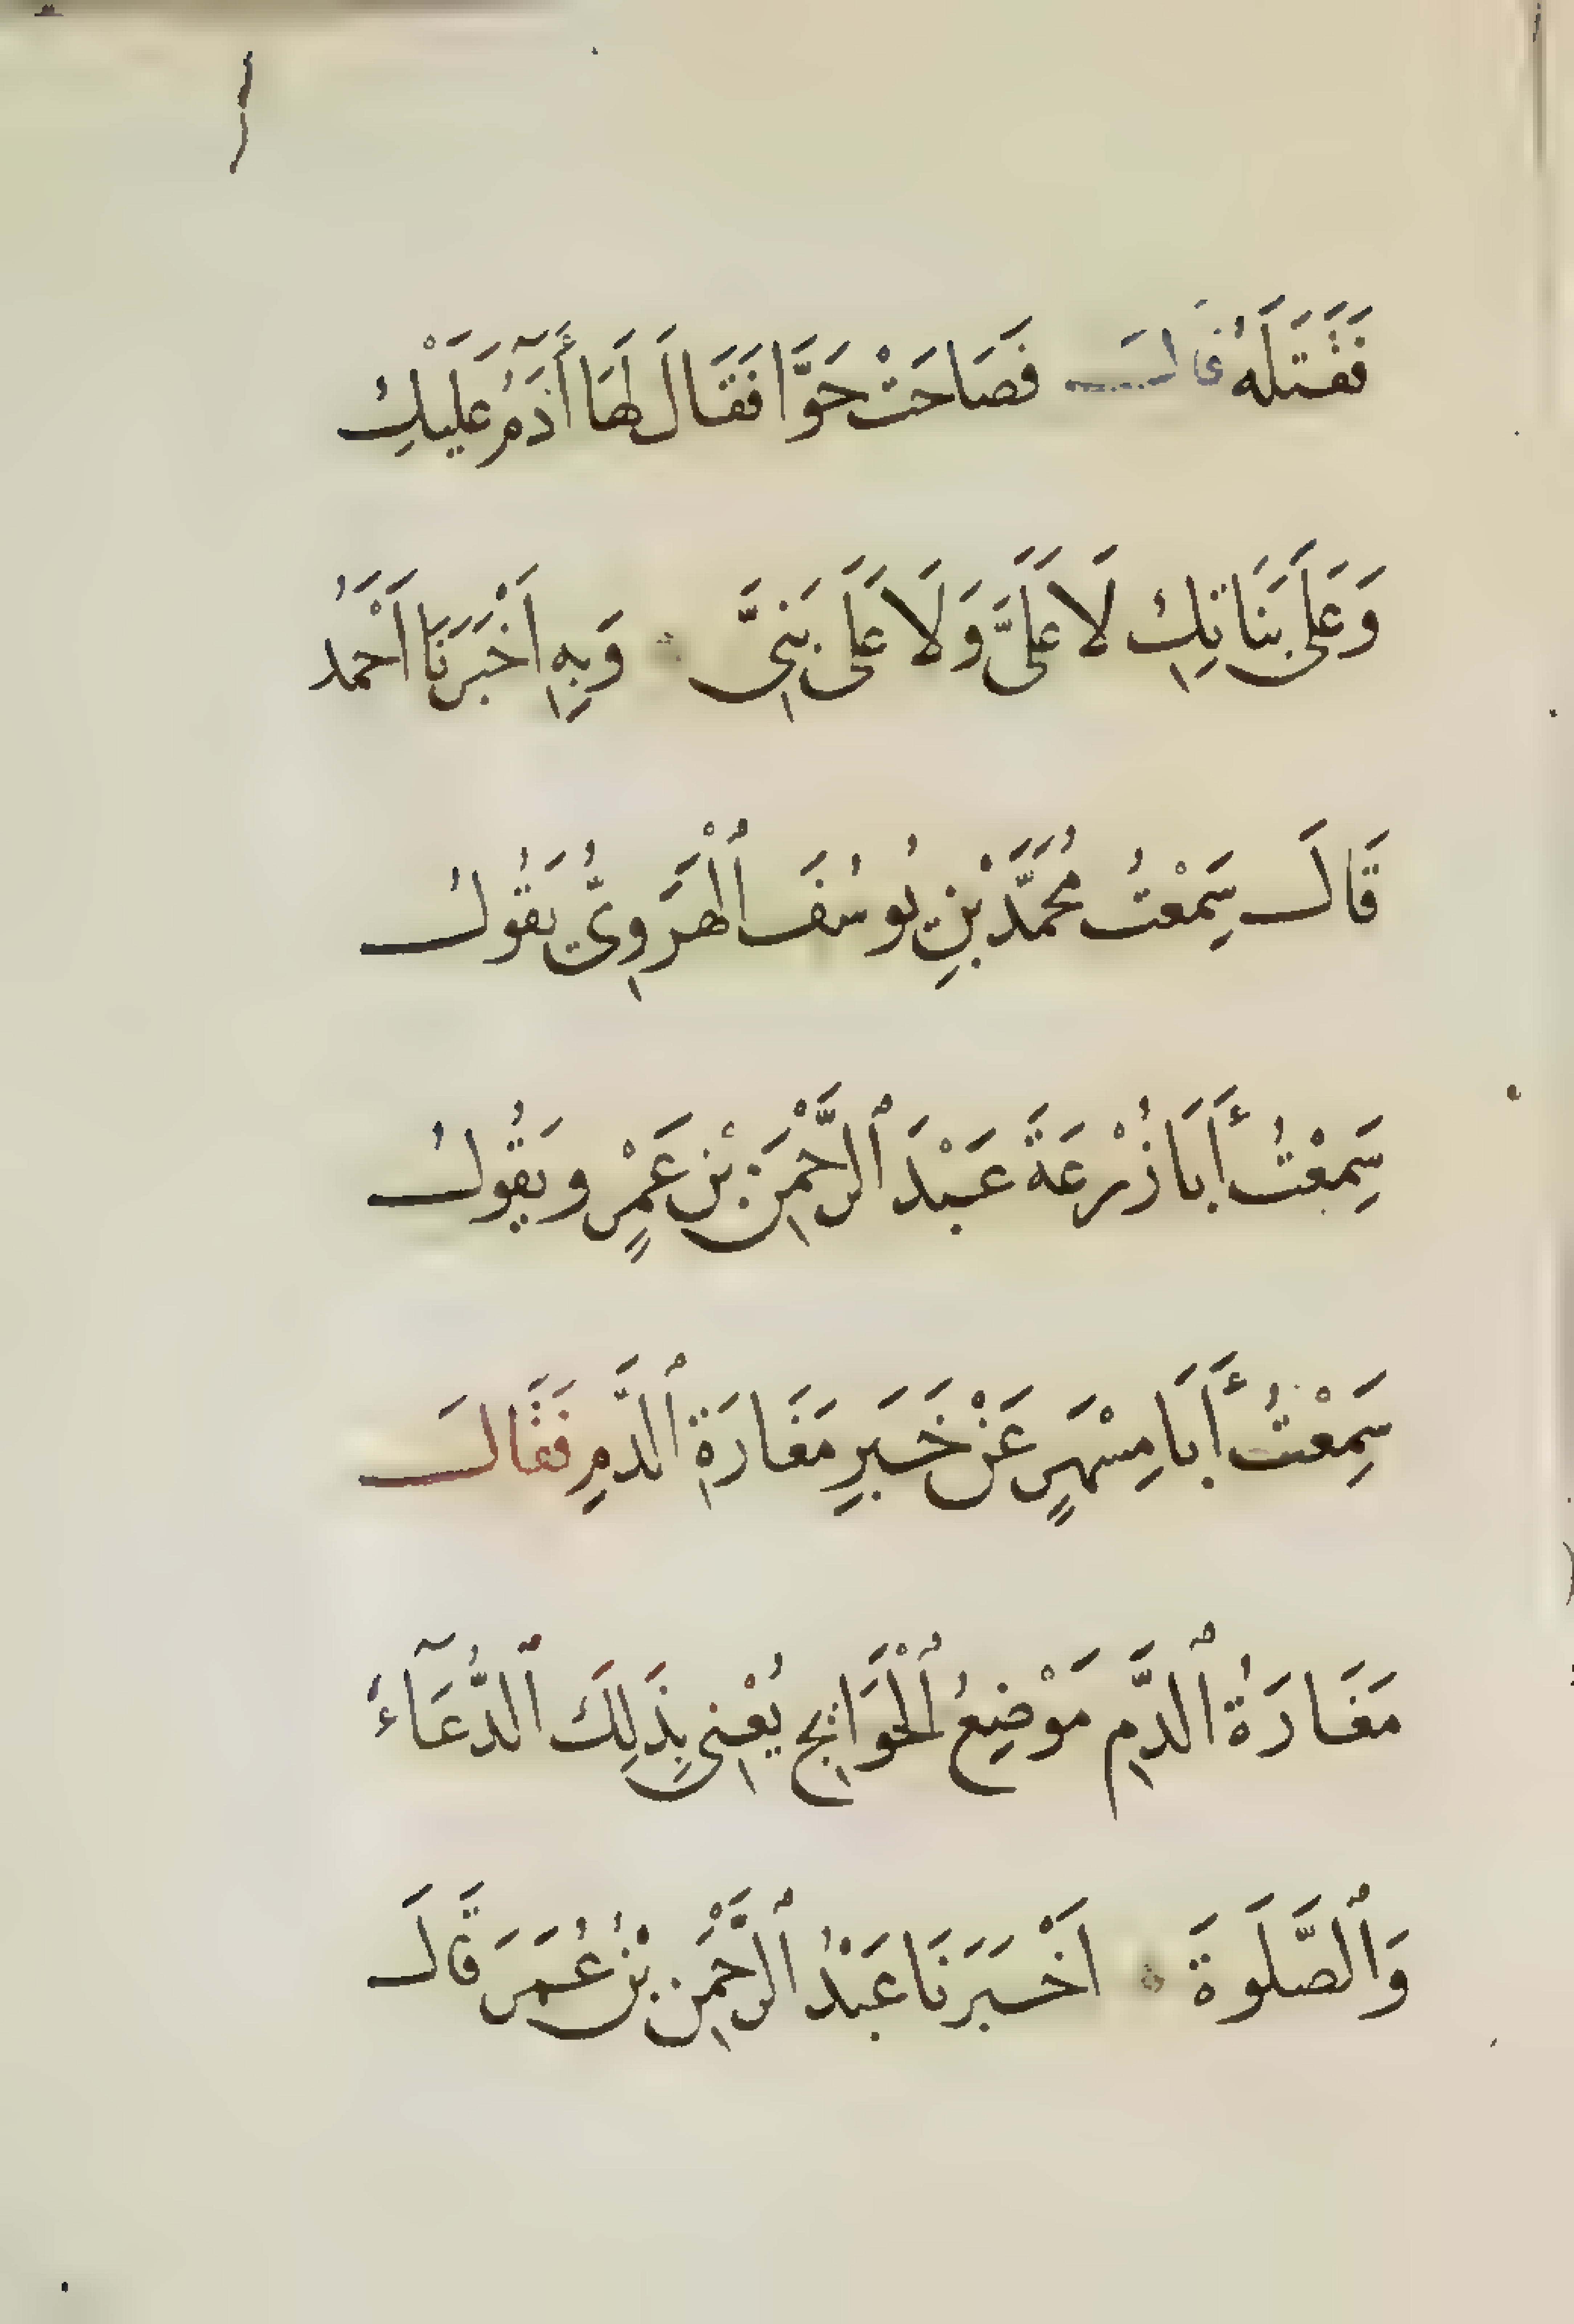 فَقَتَلَهُ قَالَ فَصَاحَتْ حَوَّا فَقَالَ لَهَا أَدَمُ عَلَيْكِ
وَعَلَى بَنَاتِكِ لَا عَلَيَّ وَلَا عَلَى بَنِيَّ وَبِهِ اَخْبَرَنَا اَحْمَدُ
قَالَ سَمِعْتُ مُحَمَّدَ بْنِ يُوسُفَ ٱلْهَرَوِيَّ يَقُولُ
سَمِعْتُ أَبَا زُرْعَةَ عَبْدَ ٱلرَّحْمٰنِ بْنِ عَمْرٍو يَقُولُ
سَمِعْتُ أَبَا مِسْهَرٍ عَنْ خَبَرِ مَغَارَةِ ٱلدَّمِ فَقَالَ
مَغَارَةُ ٱلدَّمِ مَوْضِعُ ٱلْحَوَائِجِ يُعْنِي بِذَلِكَ ٱلدُّعَآءَ
وَٱلصَّلَوةَ اَخْبَرَنَا عَبْدُ ٱلرَّحْمٰنِ بْنُ عُمَرَ قَالَ